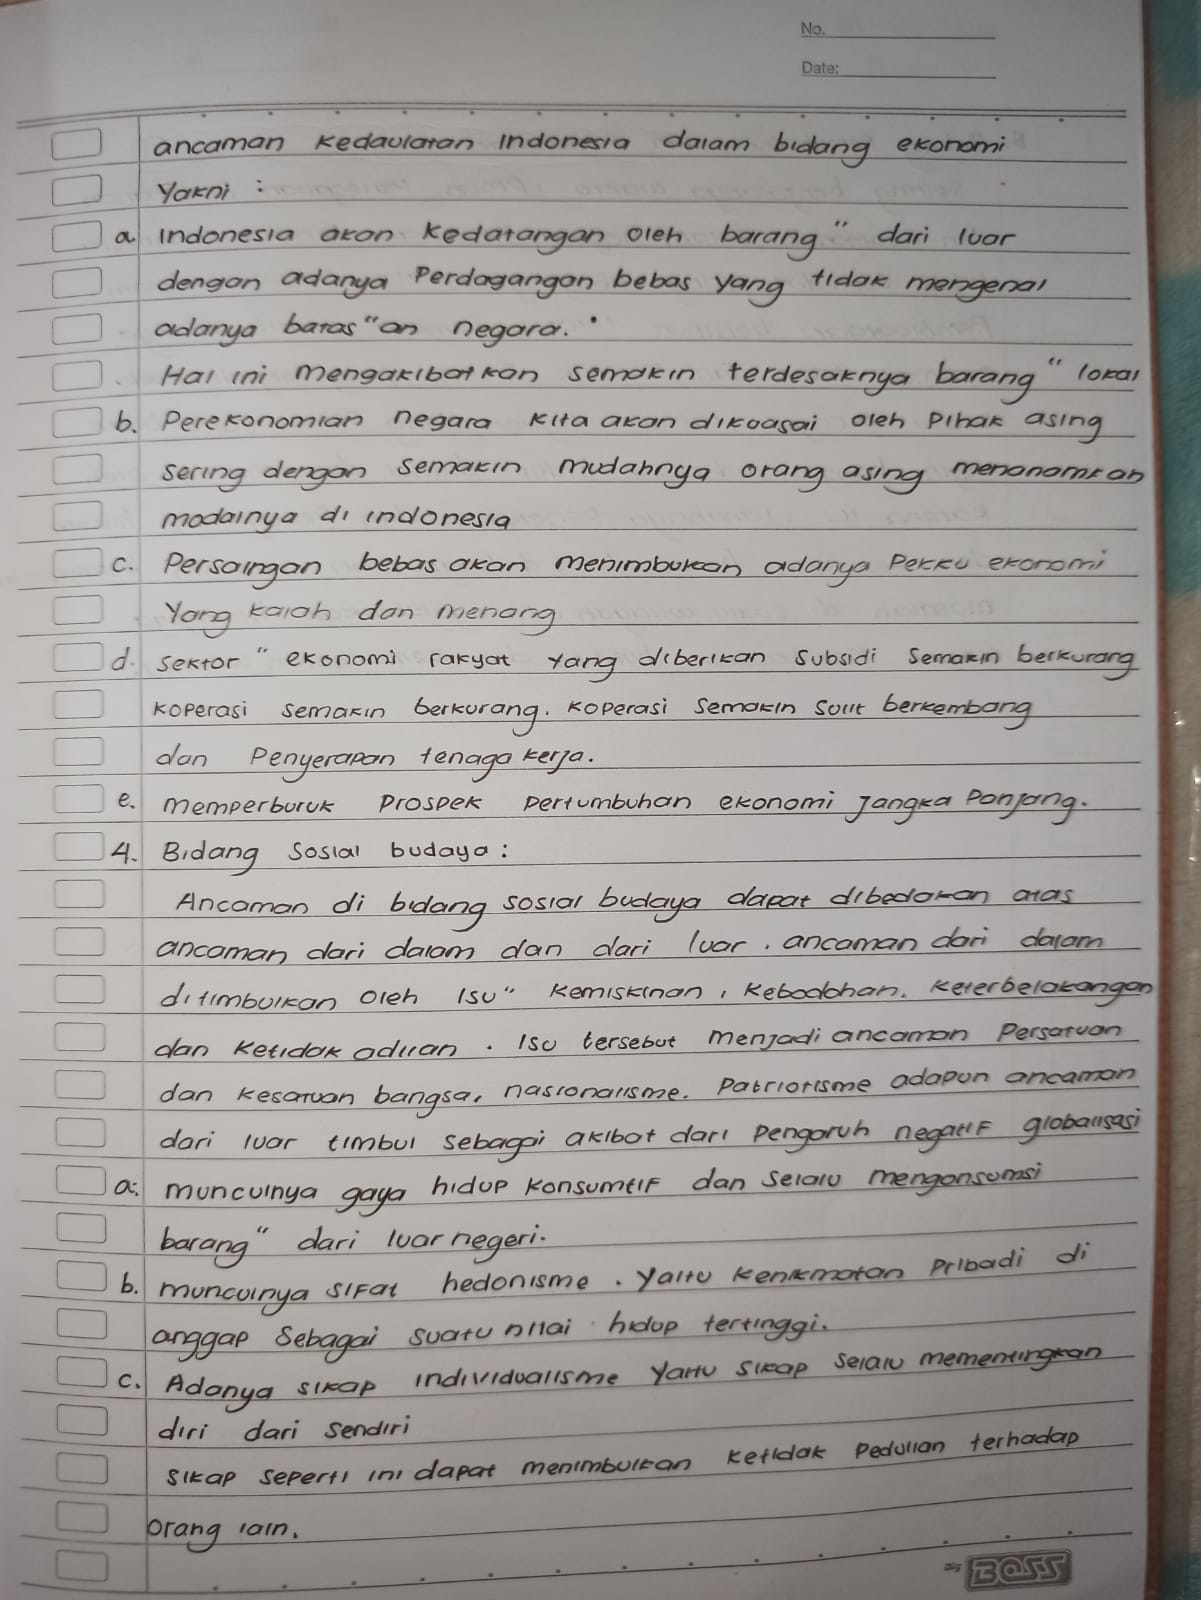 No.
Date:
ancaman kedaulatan Indonesia dalam bidang ekonomi
Yakni :
a. Indonesia akan kedatangan oleh barang" dari luar
dengan adanya Perdagangan bebas yang tidak mengenal
adanya batas"an negara.
Hal ini mengakibatkan semakin terdesaknya barang" lokal
b. Perekonomian negara kita akan dikuasai oleh Pihak asing
sering dengan semakin mudahnya orang asing menanamkan
modalnya di indonesia
c. Persaingan bebas akan menimbulkan adanya Pekku ekonomi
Yang kalah dan menang
d. sektor" ekonomi rakyat yang diberikan subsidi semakin berkurang
koperasi semakin berkurang. koperasi semakin sulit berkembang
dan Penyerapan tenaga kerja.
e. memperburuk prospek pertumbuhan ekonomi jangka Panjang.
4. Bidang Sosial budaya :
Ancaman di bidang sosial budaya dapat dibedakan atas
ancaman dari dalam dan dari luar . ancaman dari dalam
ditimbulkan oleh isu" kemiskinan , kebodohan. keterbelakangan
dan ketidak adilan . Isu tersebut menjadi ancaman Persatuan
dan kesatuan bangsa, nasionalisme. Patriotisme adapun ancaman
dari luar timbul sebagai akibat dari pengaruh negatif globalisasi
a. munculnya gaya hidup konsumtif dan selalu mengonsumsi
barang" dari luar negeri.
b. munculnya sifat hedonisme . yaitu kenikmatan Pribadi di
anggap sebagai suatu nilai hidup tertinggi.
c. Adanya sikap individualisme yaitu sikap selalu mementingkan
diri dari sendiri
sikap seperti ini dapat menimbulkan ketidak pedulian terhadap
orang lain.
BOSS